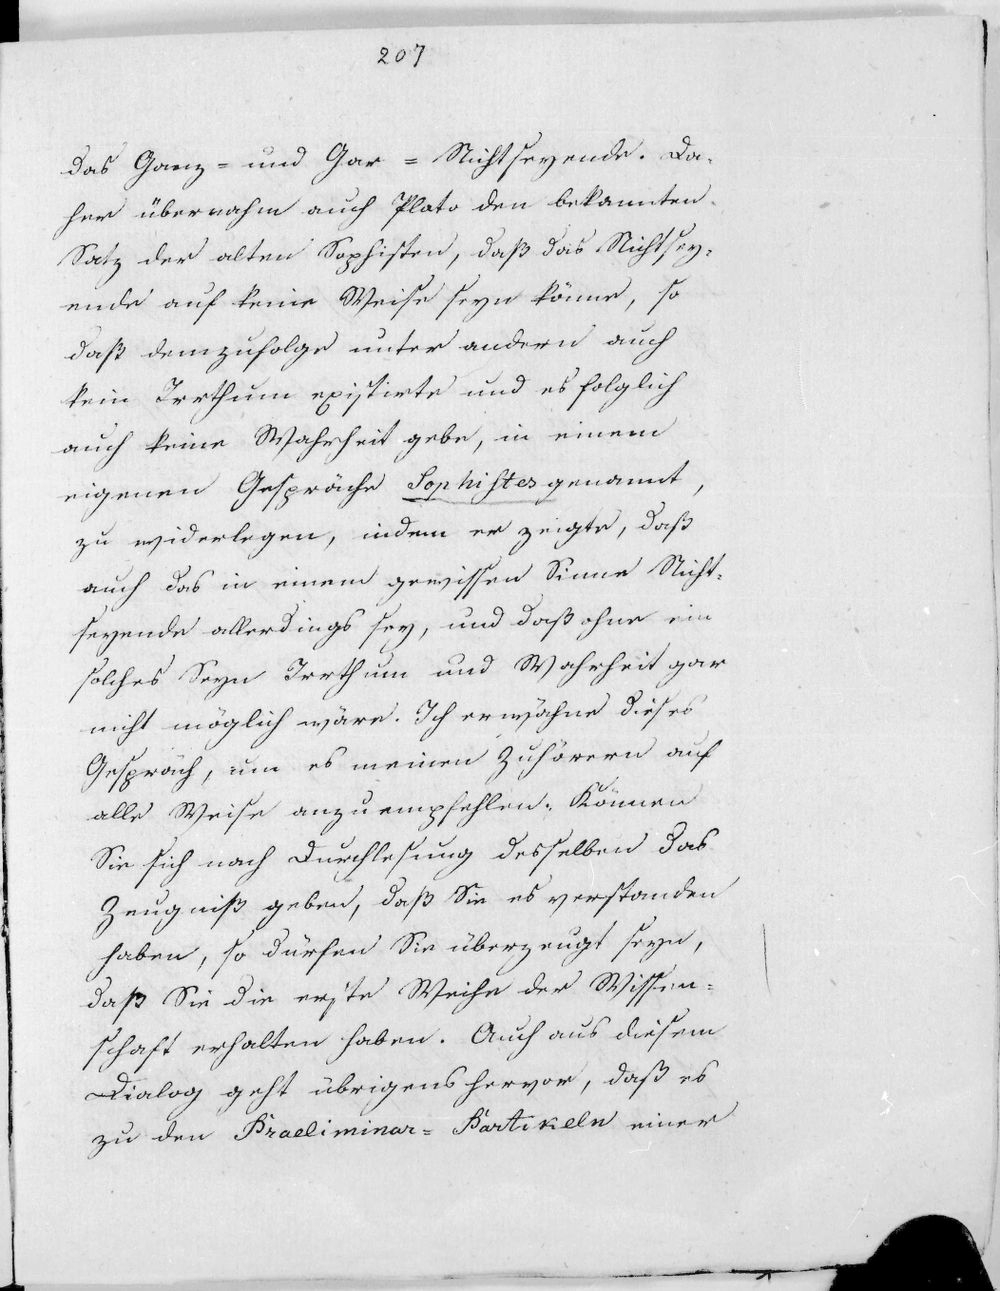 207
das Ganz= und Gar=Nichtseyende. Da-
her übernahm auch Plato den bekannten
Satz der alten Sophisten, daß das Nichtsey-
ende auf keine Weise seyn könne, so
daß demzufolge unter andern auch
kein Irrthum existirte und es folglich
auch keine Wahrheit gebe, in einem
eigenen Gespräche Sophistes genannt,
zu widerlegen, indem er zeigte, daß
auch das in einem gewissen Sinne Nicht-
seyende allerdings sey, und daß ohne ein
solches Seyn Irrthum und Wahrheit gar
nicht möglich wäre. Ich erwähne dieses
Gespräch, um es meinen Zuhörern auf
alle Weise anzuempfehlen. Können
Sie sich nach Durchlesung desselben das
Zeugniß geben, daß Sie es verstanden
haben, so dürfen Sie überzeugt seyn,
daß Sie die erste Weihe der Wissen=
schaft erhalten haben. Auch aus diesem
Dialog geht übrigens hervor, daß es
zu den Praeliminar=Partikeln einer